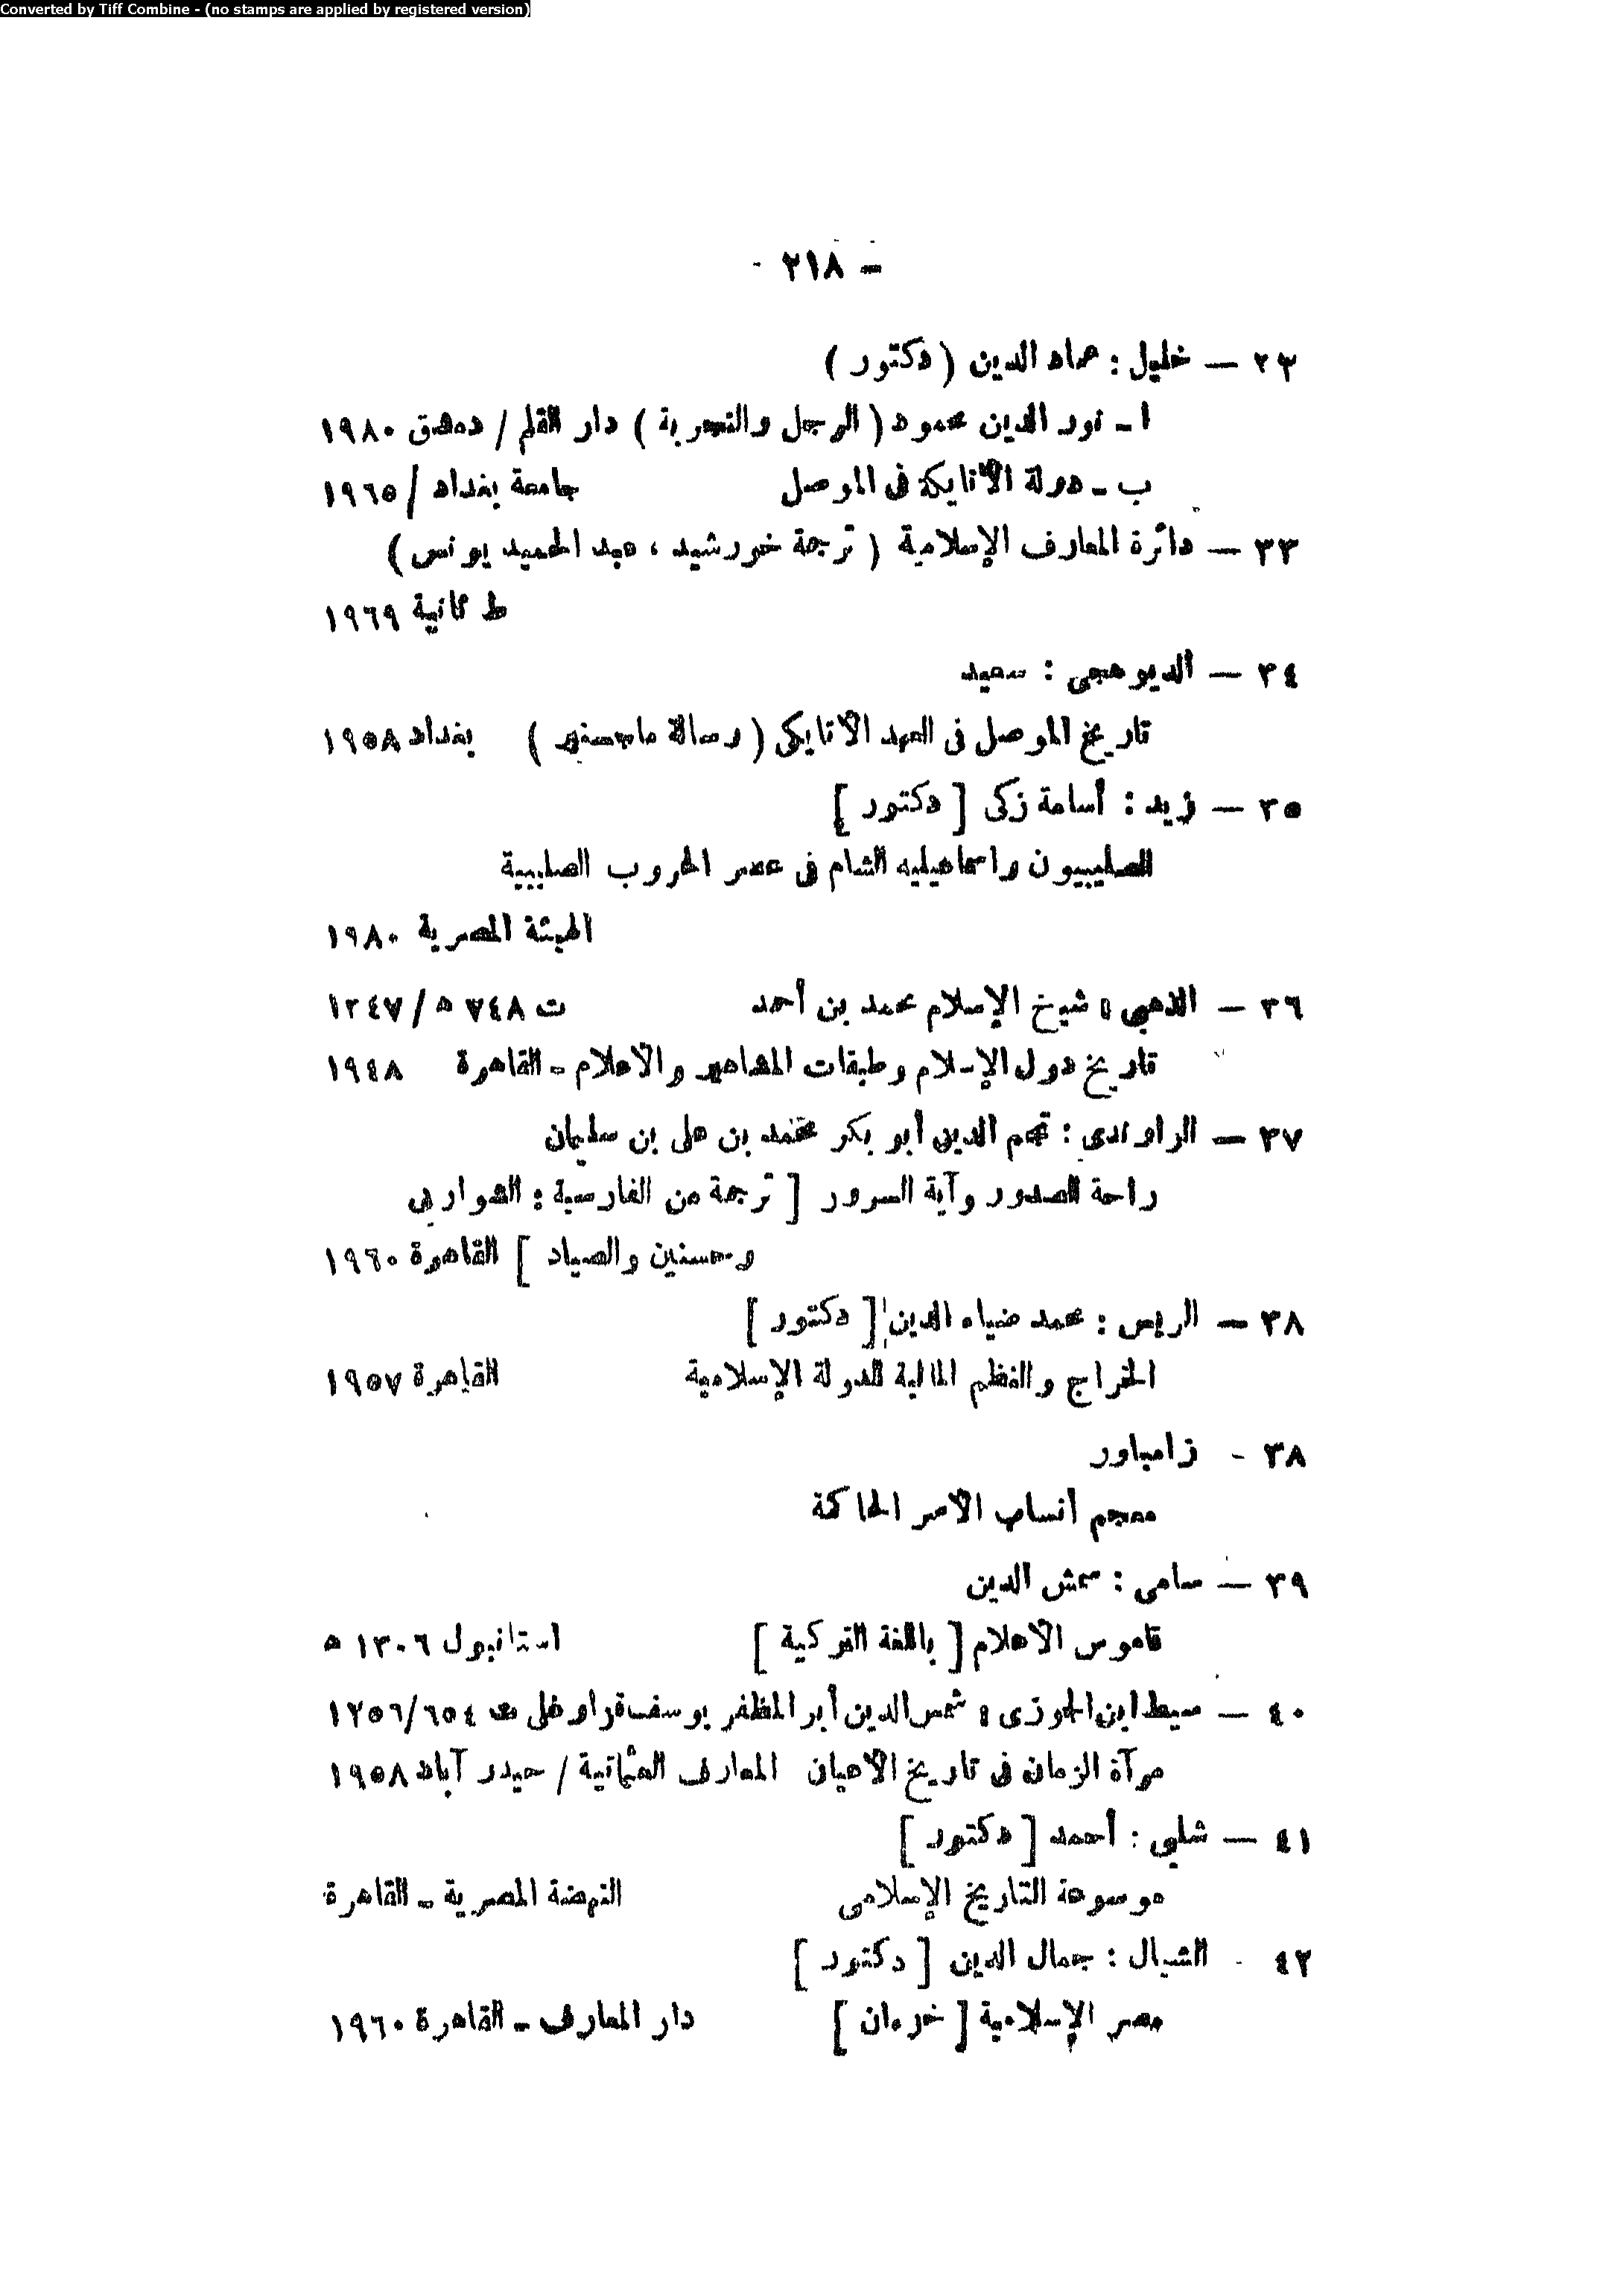 Converted by Tiff Combine - (no stamps are applied by registered version)
- ٢١٨ -
٢٣ — خليل : عماد الدين ( دكتور )
ا ـ نور الدين محمود ( الرجل والتجربة ) دار القلم / دمشق ١٩٨٠
ب ـ دولة الأتابكة فى الموصل جامعة بغداد / ١٩٦٥
٣٣ — دائرة المعارف الإسلامية ( ترجمة خورشيد ، عبد الحميد يونس )
ط ثانية ١٩٦٩
٣٤ — الديوهجى : سعيد
تاريخ الموصل فى العهد الأتابكى ( رسالة ماجستير ) بغداد ١٩٥٨
٣٥ — زيد : أسامة زكى [ دكتور ]
الصليبيون واسماعيليه الشام فى عصر الحروب الصليبية
الهيئة المصرية ١٩٨٠
٣٦ — الذهبى : شيخ الإسلام محمد بن أحمد ت ٧٤٨ ه / ١٣٤٧
تاريخ دول الإسلام وطبقات المشاهير والأعلام ـ القاهرة ١٩٤٨
٣٧ — الراوندى : نجم الدين أبو بكر محمد بن على بن سليمان
راحة الصدور وآية السرور [ ترجمة من الفارسية : الشواربى
وحسنين والصياد ] القاهرة ١٩٦٠
٣٨ — الريس : محمد ضياء الدين [ دكتور ]
الخراج والنظم المالية للدولة الإسلامية القاهرة ١٩٥٧
٣٨ - زامباور
معجم أنساب الأسر الحاكمة
٣٩ — سامى : سمش الدين
قاموس الأعلام [ باللغة التركية ] استانبول ١٣٠٦ ه
٤٠ — سبط ابن الجوزى : شمس الدين أبو المظفر يوسف قزاوغلى ت ٦٥٤/١٢٥٦
مرآة الزمان فى تاريخ الأعيان المعارف العثمانية / حيدر آباد ١٩٥٨
٤١ — شلبى : أحمد [ دكتور ]
موسوعة التاريخ الإسلامى النهضة المصرية ـ القاهرة
٤٢ - الشيال : جمال الدين [ دكتور ]
مصر الإسلامية [ جزءان ] دار المعارف ـ القاهرة ١٩٦٠